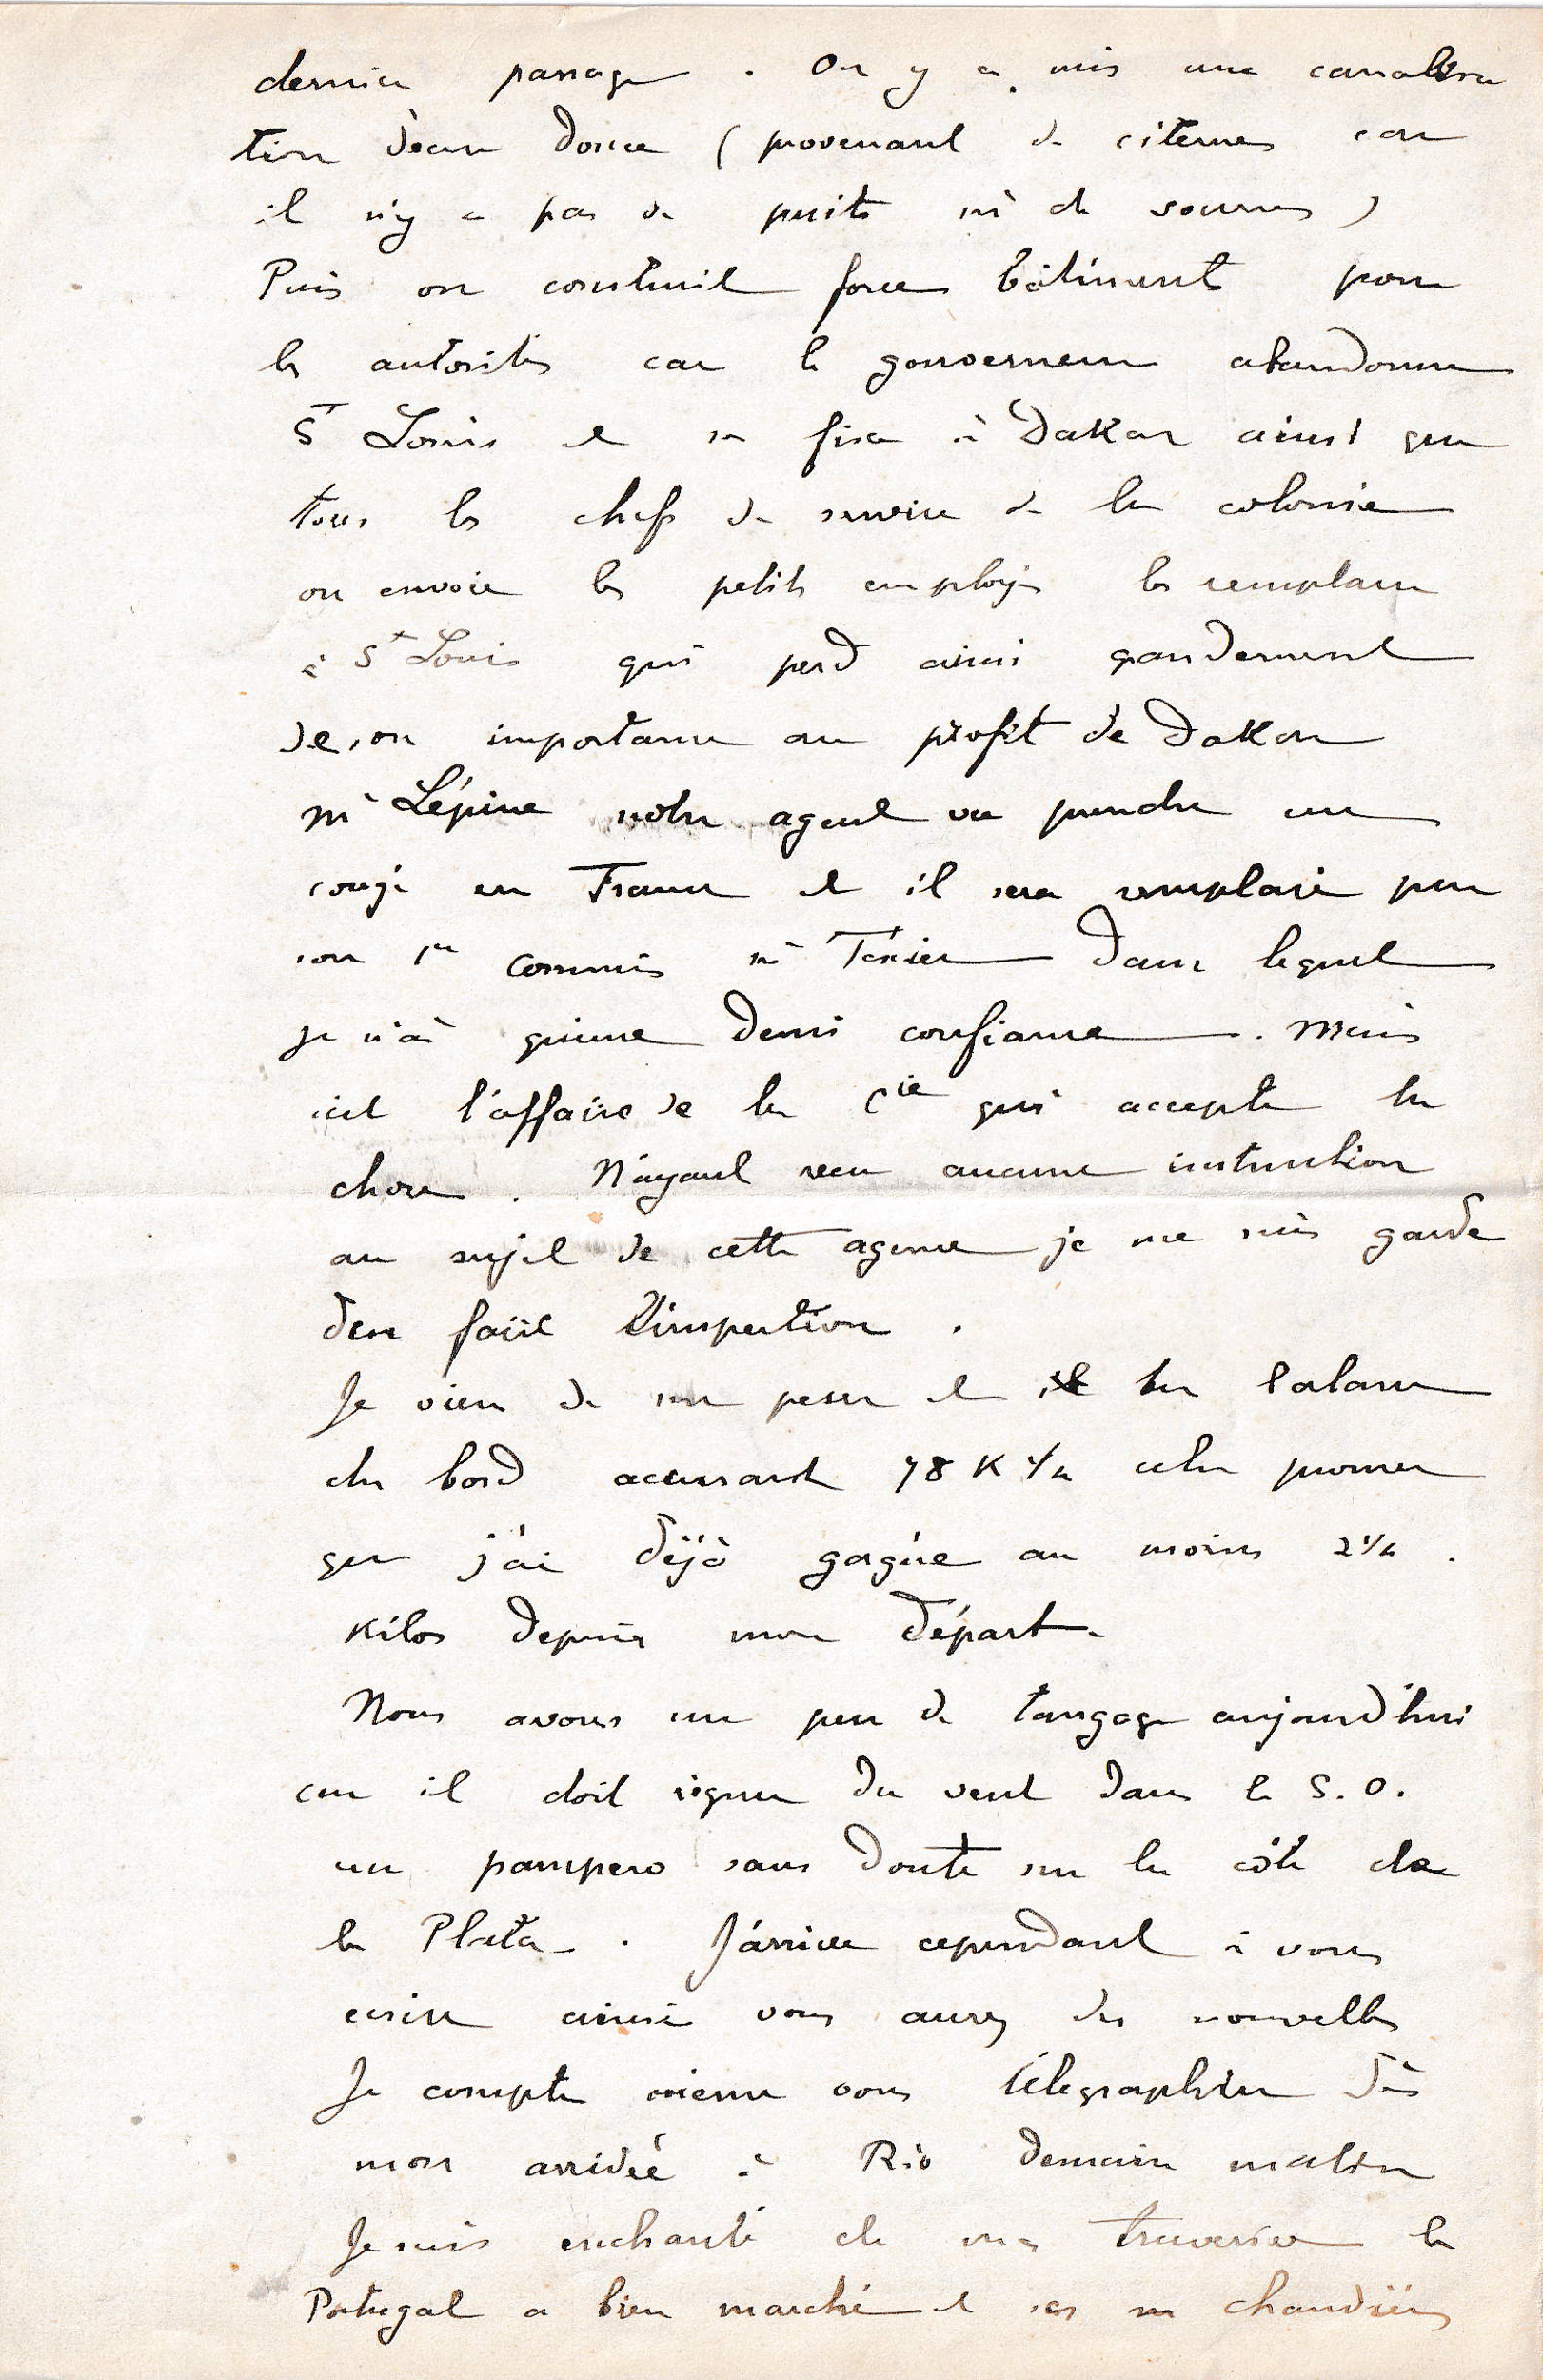 dernier passage. On y a mis une canalisa
tion d'eau douce (provenant de citernes car
il n'y a pas de puits ni de sources)
Puis on construit force bâtiments pour
les autorités car le gouverneur abandonne
St Louis et se fixe à Dakar ainsi que
tous les chefs de service de la colonie
on envoie les petits employés les remplacer
à St Louis qui perd ainsi grandement
de son importance au profit de Dakar
Mr Lépine notre agent va prendre un
congé en France et il sera remplacé par
son 1er commis Mr dans lequel
je n'ai qu'une demi confiance. Mais
c'est l'affaire de la Cie qui accepte la
chose. N'ayant reçu aucune instruction
au sujet de cette agence je me suis gardé
d'en faire l'inspection.
Je viens de me peser et la balance
du bord accusant 78 K ½ cela prouve
que j'ai déjà gagné au moins 2 ½
Kilos depuis mon départ.
Nous avons un peu de tangage aujourd'hui
car il doit régner du vent dans le S.O.
un pampero sans doute sur la côte de
la Plata. J'arrive cependant à vous
écrire ainsi vous aurez des nouvelles
Je compte même vous télégraphier dès
mon arrivée à Rio demain matin
Je suis enchanté de ma traversée le
Portugal a bien marché et ses chaudières